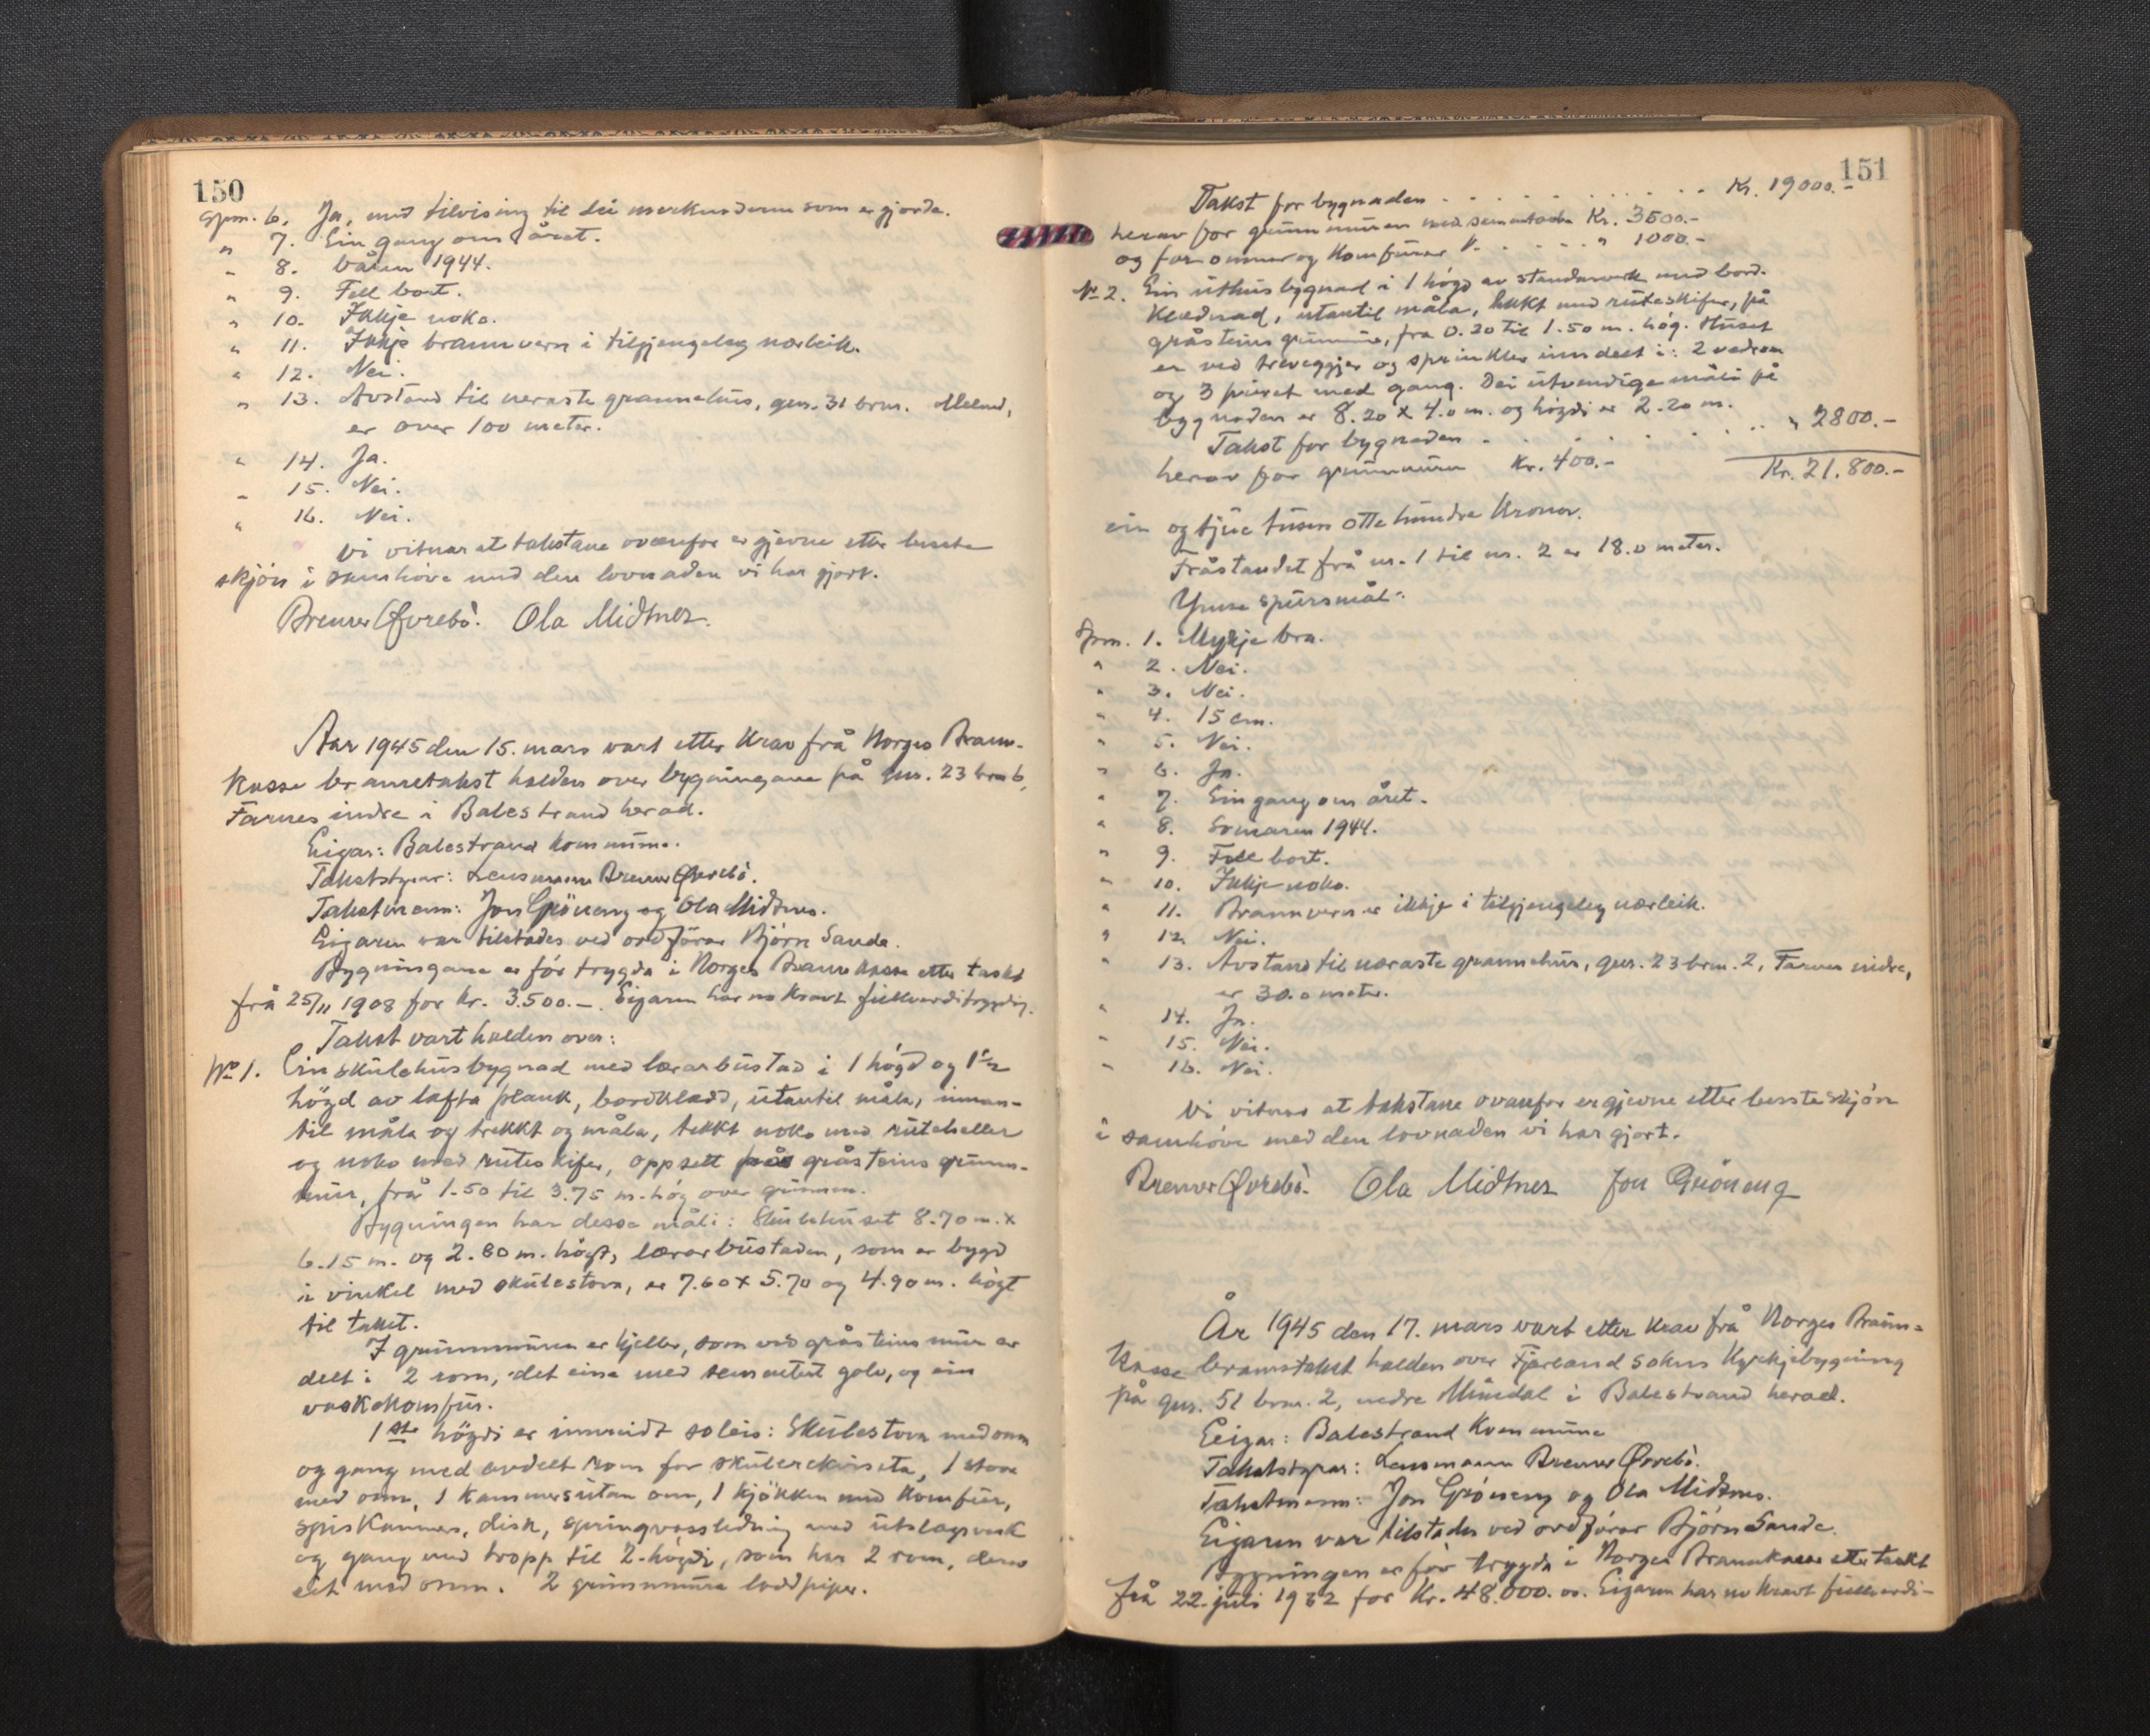 150
Spm. 6. Ja, med tilvising til dei merknadene som er gjorde.
" 7. Ein gang om året.
" 8. Våren 1944.
" 9. Fell bort.
" 10. Ikkje noko.
" 11. Ikkje brannvern i tilgjengeleg nærleik.
" 12. Nei.
" 13. Avstand til næraste grannehus, gnr. 31 brnr.
er over 100 meter.
" 14. Ja.
" 15. Nei.
" 16. Nei.
Vi vitnar at takstane ovanfor er gjevne etter beste
skjön i samhöve med den lovnaden vi har gjort.
Bremer Øvrebö. Ola Midtnes.
Aar 1945 den 15. mars vart etter krav frå Norges Brann-
kasse brannetakst halden over bygningane på gnr. 23 brn 6,
Farnes indre i Balestrand herad.
Eigar: Balestrand kommune.
Takststyrar: Lensmann Bremer Øvrebö.
Takstmenn: Jon Gröneng og Ola Midtnes.
Eigaren var tilstades ved ordförar Björn Sande.
Bygningane er för trygda i Norges Brannkasse etter takst
frå 25/11 1908 for kr. 3.500.-. Eigaren har no kravt fullverditrygding.
Takst vart halden over:
No 1. Ein skulehusbygnad med lærarbustad i 1 högd og 1 1/2
högd av lafta plank, bordkledd, utantil måla, innan-
til måla og trekkt og måla, tekkt noko med ruteheller
og noko med ruteskifer, oppsett på gråsteins grunn-
mur, frå 1.50 til 3.75 m. hög over grunnen.
Bygningen har desse måli: Skulehuset 8.70 m. x
6.15 m. og 2.80 m. högt, lærarbustaden, som er bygd
i vinkel med skulestova, er 7.60 x 5.70 og 4.90 m. högt
til taket.
I grunnmuren er kjeller, som ved gråsteins mur er
delt i 2 rom, det eine med sementert golv, og ein
vaskekomfur.
1ste högdi er innreidt soleis: Skulestova med omn
og gang med avdelt rom for skulerekvisita, 1 stove
med omn, 1 kammers utan omn, 1 kjökken med komfur,
spiskammer, disk, springvassledning med utslagsvask
og gang med tropp til 2. högdi, som har 2 rom, derav
eit med omn. 2 grunnmura loddpiper.
151
Takst for bygnaden . . . . . . . . . . Kr. 19000.-
herav for grunnmuren med Kr. 3500.-
og for omnar og komfurar . . . . . " 1000.-
No 2. Ein uthusbygnad i 1 högd av standarverk med bord-
klædnad, utantil måla, tekkt med ruteskifer, på
gråsteins grunnmur, fra 0.20 til 1.50 m. hög. Huset
er ved treveggjer og sprinkler inndelt i: 2 vedrom
og 3 privet med gang. Dei utvendige måli på
bygnaden er 8.20 x 4.0 m. og högdi er 2.20 m.
Takst for bygnaden . . . . . . . . " 2800.-
herav for grunnmuren Kr. 400.-
Kr. 21.800.-
ein og tjue tusen otte hundre kroner.
Fråstandet frå nr. 1 til nr. 2 er 18.0 meter.
Ymse spursmål:
Spm. 1. Mykje bra.
" 2. Nei.
" 3. Nei.
" 4. 15 cm.
" 5. Nei.
" 6. Ja.
" 7. Ein gang om året.
" 8. Somaren 1944.
" 9. Fell bort.
" 10. Ikkje noko.
" 11. Brannvern er ikkje i tilgjengeleg nærleik.
" 12. Nei.
" 13. Avstand til næraste grannehus, gnr. 23 brnr. 2, Farnes indre,
er 30.0 meter.
" 14. Ja.
" 15. Nei.
" 16. Nei.
Vi vitnar at takstane ovanfor er gjevne etter beste skjön
i samhöve med den lovnaden vi har gjort.
Bremer Øvrebö. Ola Midtnes Jon Gröneng
År 1945 den 17. mars vart etter krav frå Norges Brann-
kasse brannetakst halden over Fjærland sokns kyrkjebygning
på gnr. 51 brnr. 2, nedre Mundal i Balestrand herad.
Eigar: Balestrand Kommune
Takststyrar: Lensmann Bremer Øvrebö.
Takstmenn: Jon Gröneng og Ola Midtnes.
Eigaren var tilstades ved ordförar Björn Sande.
Bygningen er för trygda i Norges Brannkasse etter takst
frå 22. juli 1932 for kr. 48.000.00. Eigaren har no kravt fullverdi-